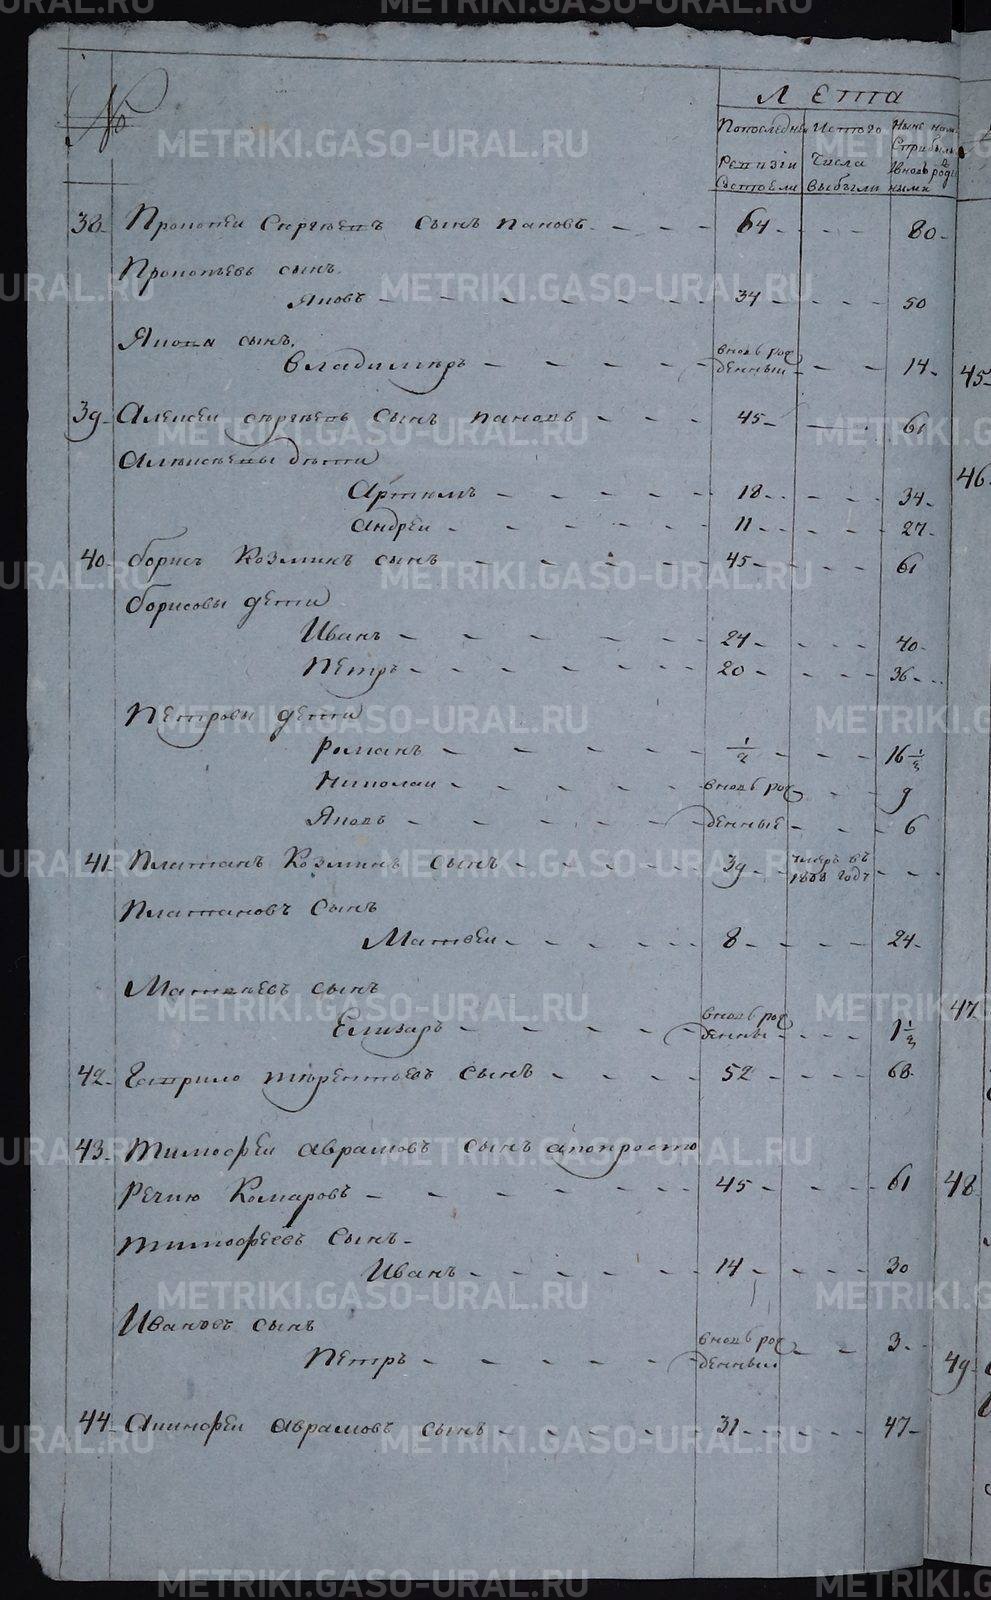 №
Лета
Попоследней
Ревизии
Состояли
Истого
Числа
Выбыли
Ныне на
Сприбыль
ными
METRIKI.GASO-URAL.RU
38 Прокопеи Сергѣевъ сынъ пановъ 64 80
Прокопьевъ сынъ
Яковъ 34 50
Якова сынъ
Владимиръ вновь рожденныи 14
39 Алексеи сергѣевъ сынъ пановъ 45 61
Алексѣевы дѣти
Артемъ 18 34
Андреи 11 27
40 борисъ Козминъ сынъ 45 61
Борисовы дети
Иванъ 24 40
Петръ 20 36
Петровы дети
Романъ 1/2 16 1/2
Николаи вновь рож 9
Яковъ денные 6
41 Платанъ Козминъ сынъ 39 умеръ въ 1808 годѣ
Платановъ Сынъ
Матвеи 8 24
Матвѣевъ сынъ
Елизаръ вновь рожденны 1 1/2
42 Гаврило терентьевъ сынъ 52 68
43 Тимофеи аврамовъ сынъ апопросто
Речию Комаровъ 45 61
тимофеевъ Сынъ
Иванъ 14 30
Ивановъ сынъ
Петръ вновь рожденныи 3
44 Акинфеи аврамовъ сынъ 31 47
45
46
47
48
49